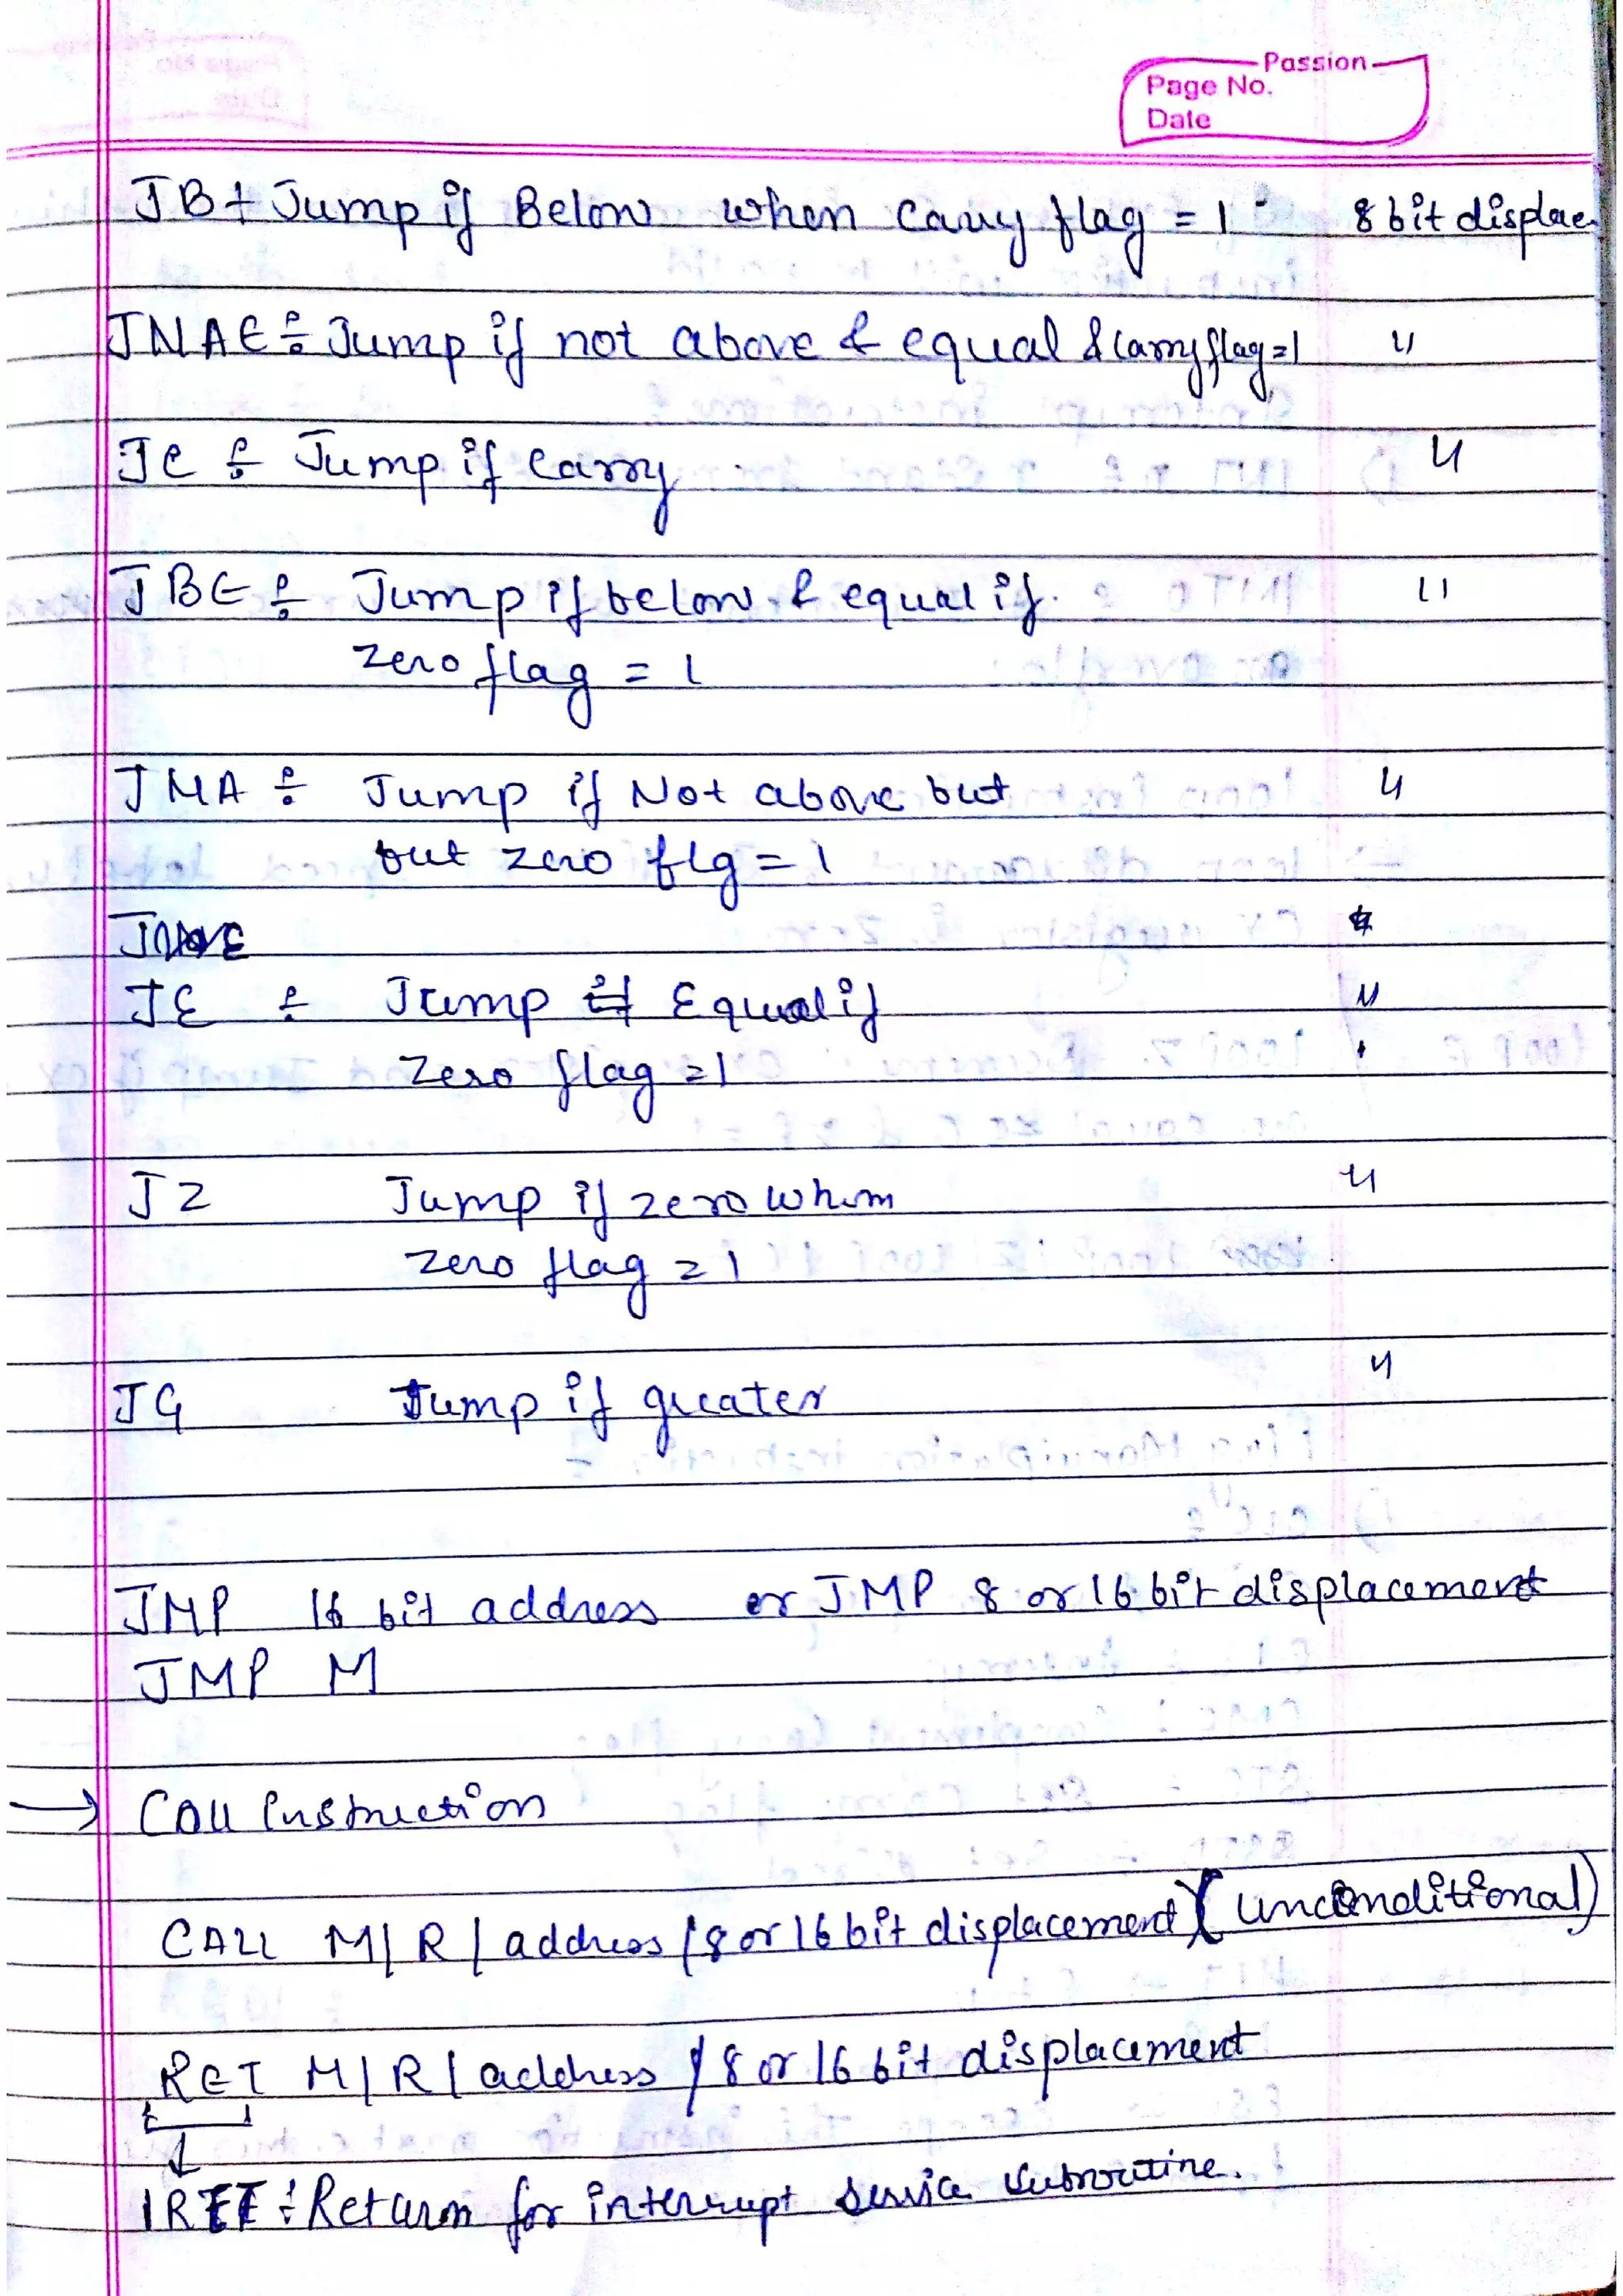 Passion
Page No.
Date
JB ÷ Jump if Below when carry flag = 1 8 bit displac
JNAE ÷ Jump if not above & equal & carry flag=1 "
JC ÷ Jump if carry "
JBE ÷ Jump if below & equal if "
zero flag = 1
JNA ÷ Jump if Not above but "
but zero flg = 1
JE ÷ Jump if Equal if "
Zero flag = 1
JZ Jump if zero when "
zero flag = 1
JG Jump if greater "
JMP 16 bit address or JMP 8 or 16 bit displacement
JMP M
→ Call Instruction
CALL M/R/address/8 or 16 bit displacement (unconditional)
RET M/R/address/8 or 16 bit displacement
IRET ÷ Return for interrupt service subroutine.